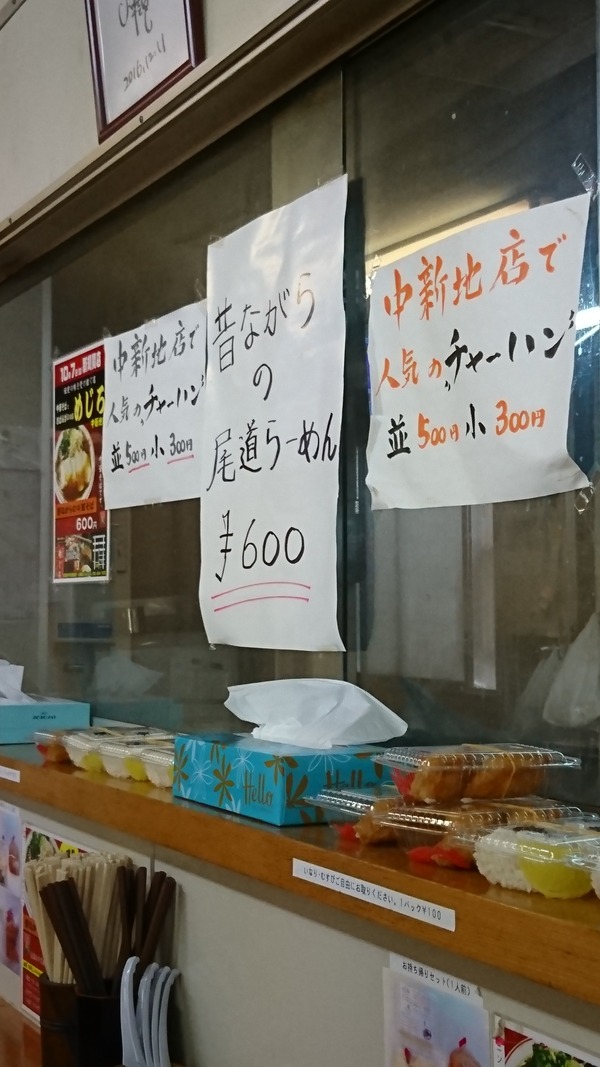 2016.12.11
10月7日
めじろ
600円
中新地店で
人気の"チャーハン"
並500円 小300円
昔ながら
の
尾道らーめん
¥600
中新地店で
人気の"チャーハン"
並500円 小300円
Hello
Hello
いなり・むすびご自由にお取りください。1パック¥100
お持ち帰りセット(1人前)